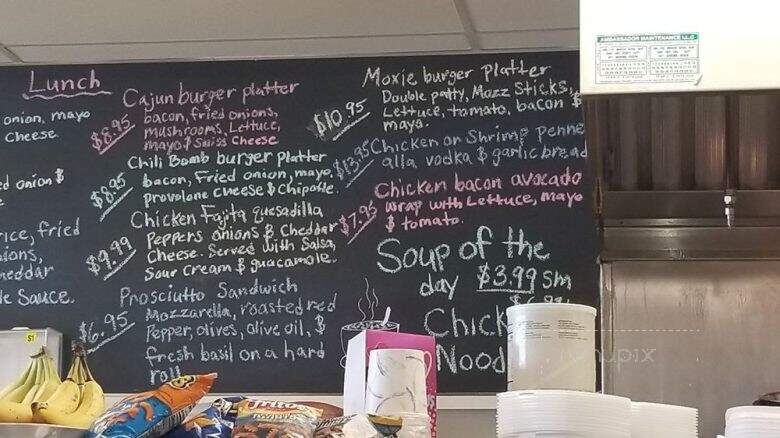 Lunch
onion, mayo
cheese
onion &
rice, fried
heddar
Sauce.
Cajun burger platter
$8.95
bacon, fried onions,
mushrooms, Lettuce,
mayo & Swiss Cheese
Chili Bomb burger Platter
$8.95
bacon, Fried onion, mayo,
provolone cheese & Chipotle.
Chicken Fajita quesadilla
$9.99
Peppers onions & Cheddar
Cheese. Served with Salsa,
Sour Cream & guacamole.
Prosciutto Sandwich
$6.95
Mozzarella, roasted red
Pepper, olives, olive oil, &
fresh basil on a hard
roll
Moxie burger Platter
$10.95
Double patty, Mozz Sticks,
Lettuce, tomato, bacon &
mayo.
$13.95
Chicken or Shrimp penne
alla vodka & garlic bread
Chicken bacon avocado
$7.95
wrap with Lettuce, mayo
& tomato.
Soup of the
day $3.99 sm
Chick
Nood
AMBASSADOR MAINTENANCE LLC
$1
Fritos
TWISTS